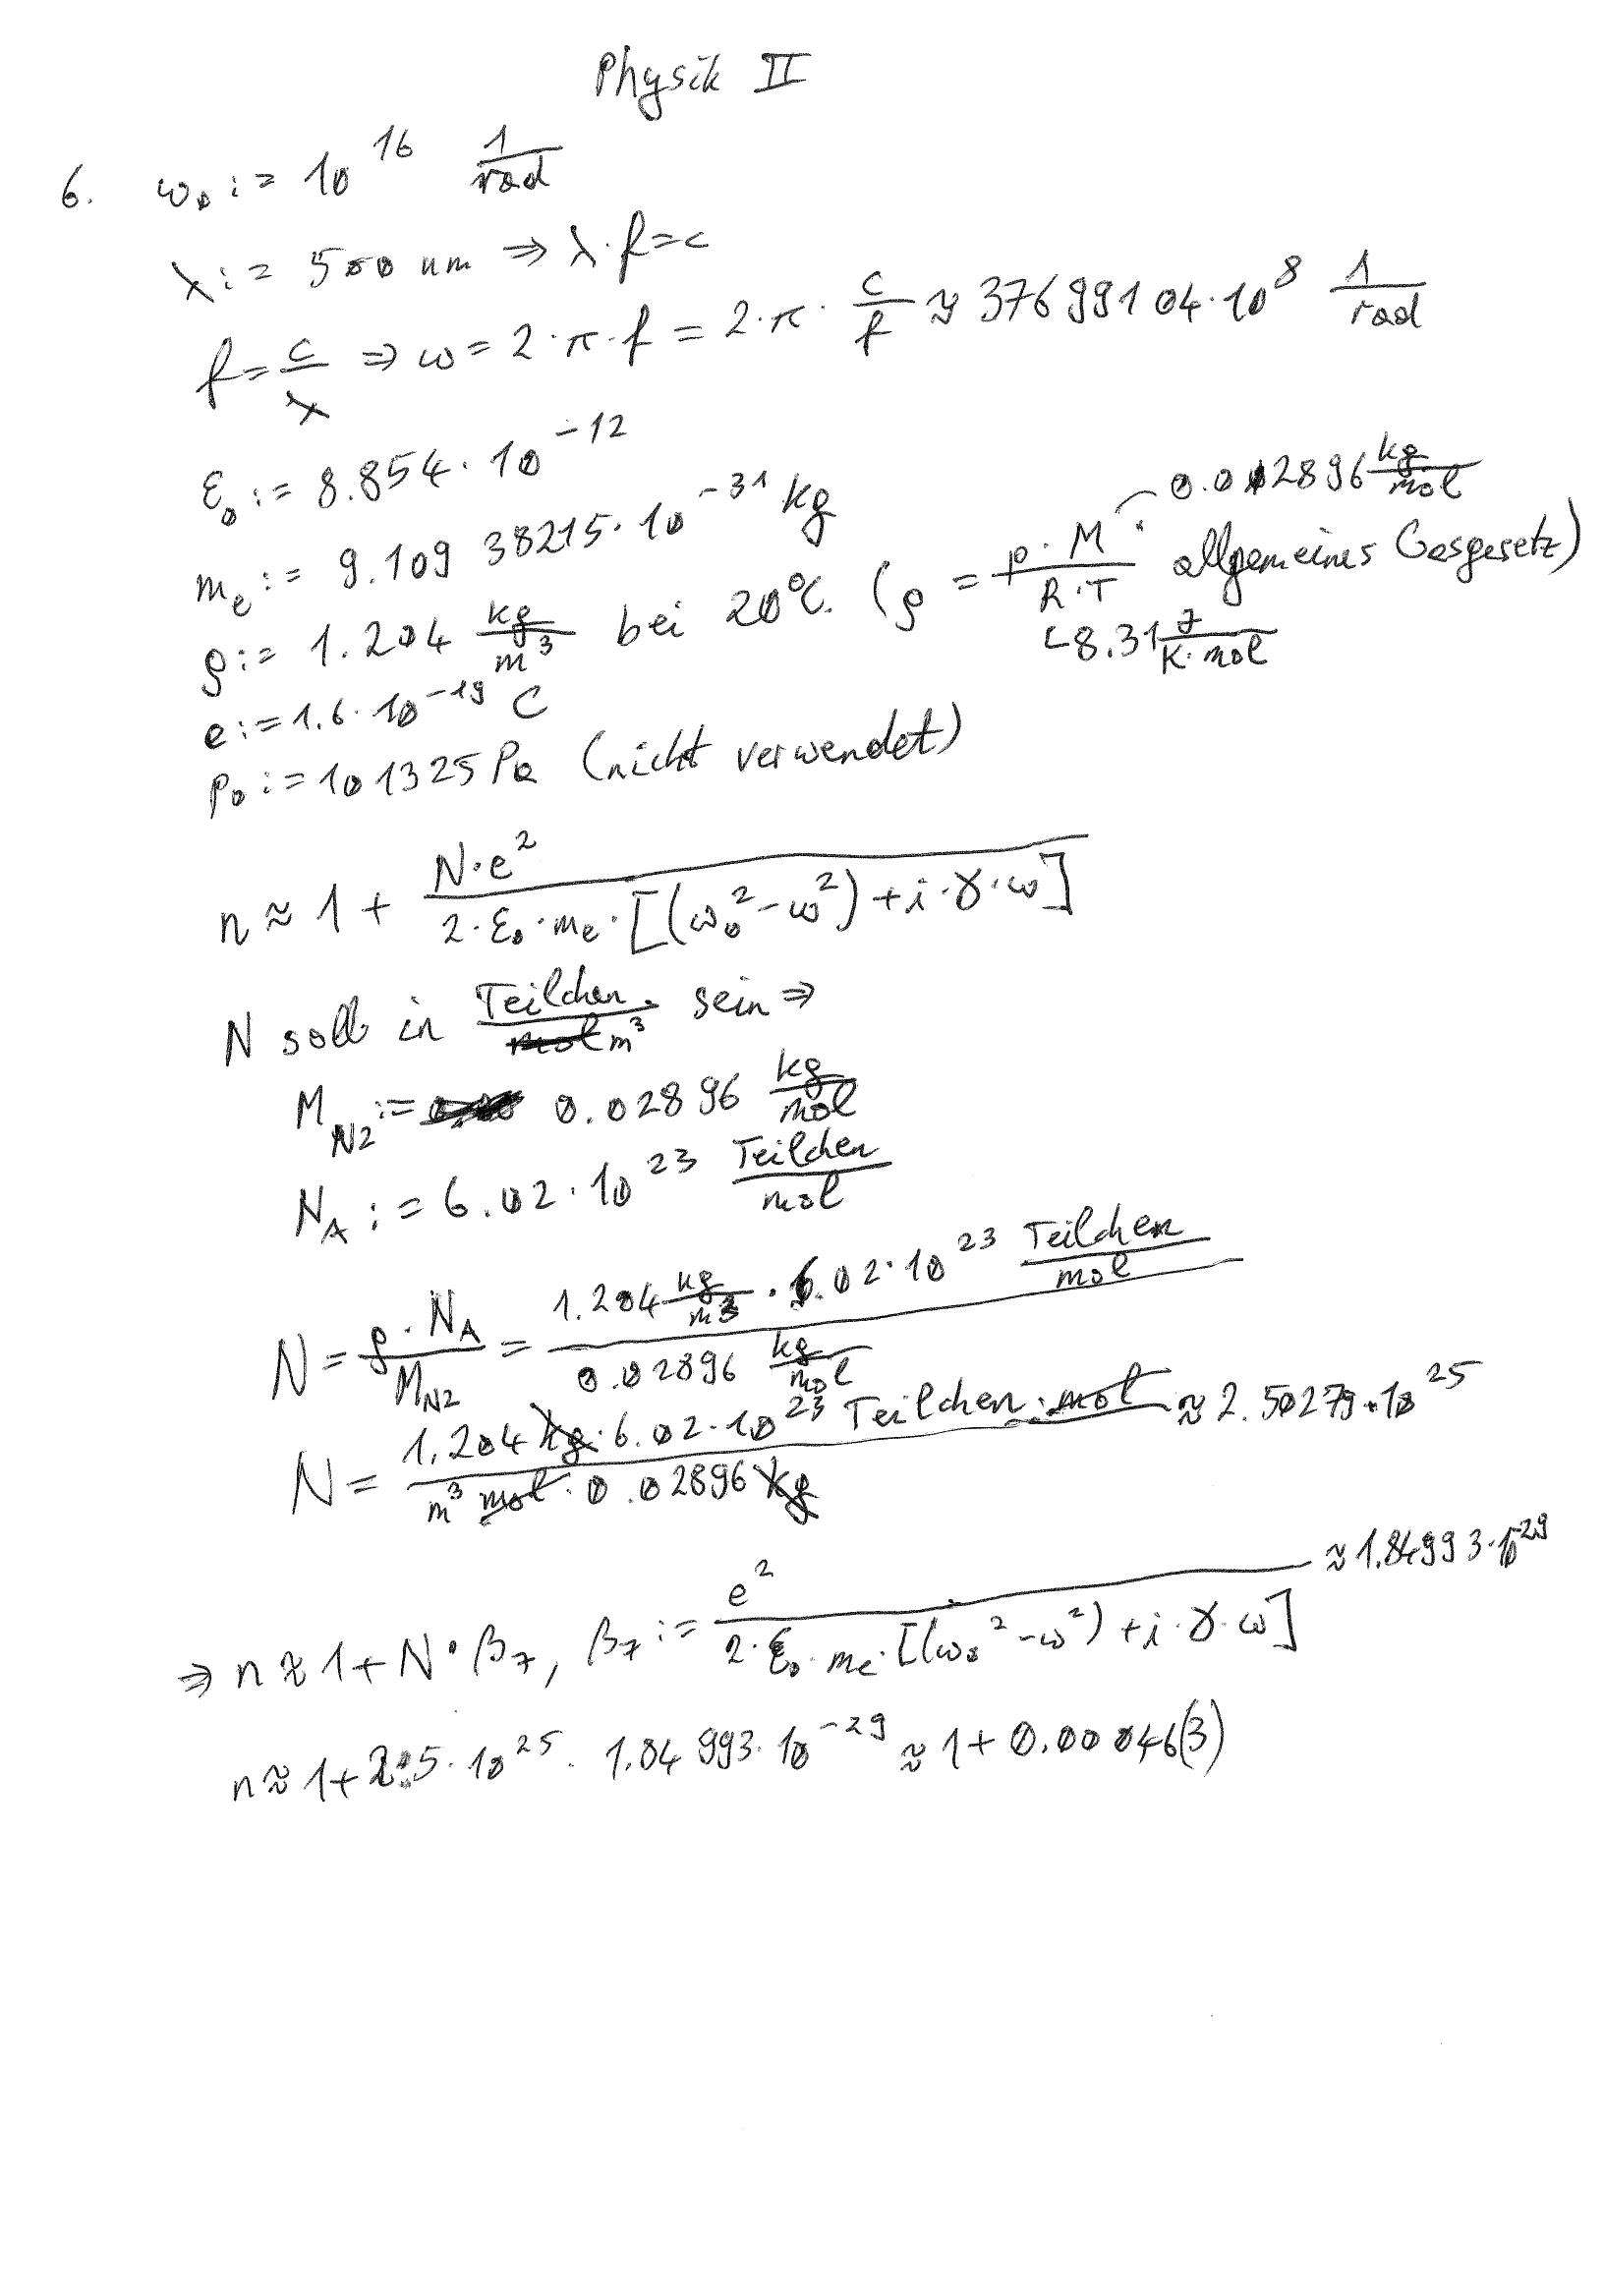 Physik II
6. ω₀ := 10^16 1/rad
λ := 500 nm ⇒ λ·f=c
f = c/λ ⇒ ω = 2·π·f = 2·π·c/f ≈ 37699104·10^8 1/rad
ε₀ := 8.854·10^-12
m_e := 9.109 38215·10^-31 kg
0.02896 kg/mol
ρ := 1.204 kg/m³ bei 20°C. (ρ = p·M/R·T allgemeines Gasgesetz)
8.31 J/K·mol
e := 1.6·10^-19 C
p₀ := 101325 Pa (nicht verwendet)
n ≈ 1 + N·e²/2·ε₀·m_e·[(ω₀²-ω²)+i·γ·ω]
N soll in Teilchen/m³ sein ⇒
M_N2 := 0.02896 kg/mol
N_A := 6.02·10^23 Teilchen/mol
N = ρ·N_A/M_N2 = 1.204 kg/m³ · 6.02·10^23 Teilchen/mol / 0.02896 kg/mol
N = 1.204 kg·6.02·10^23 Teilchen·mol / m³ mol·0.02896 kg ≈ 2.50279·10^25
⇒ n ≈ 1+N·β₇, β₇ := e²/2·ε₀·m_e·[(ω₀²-ω²)+i·γ·ω] ≈ 1.84993·10^-29
n ≈ 1+2.5·10^25·1.84993·10^-29 ≈ 1+0.00046(3)